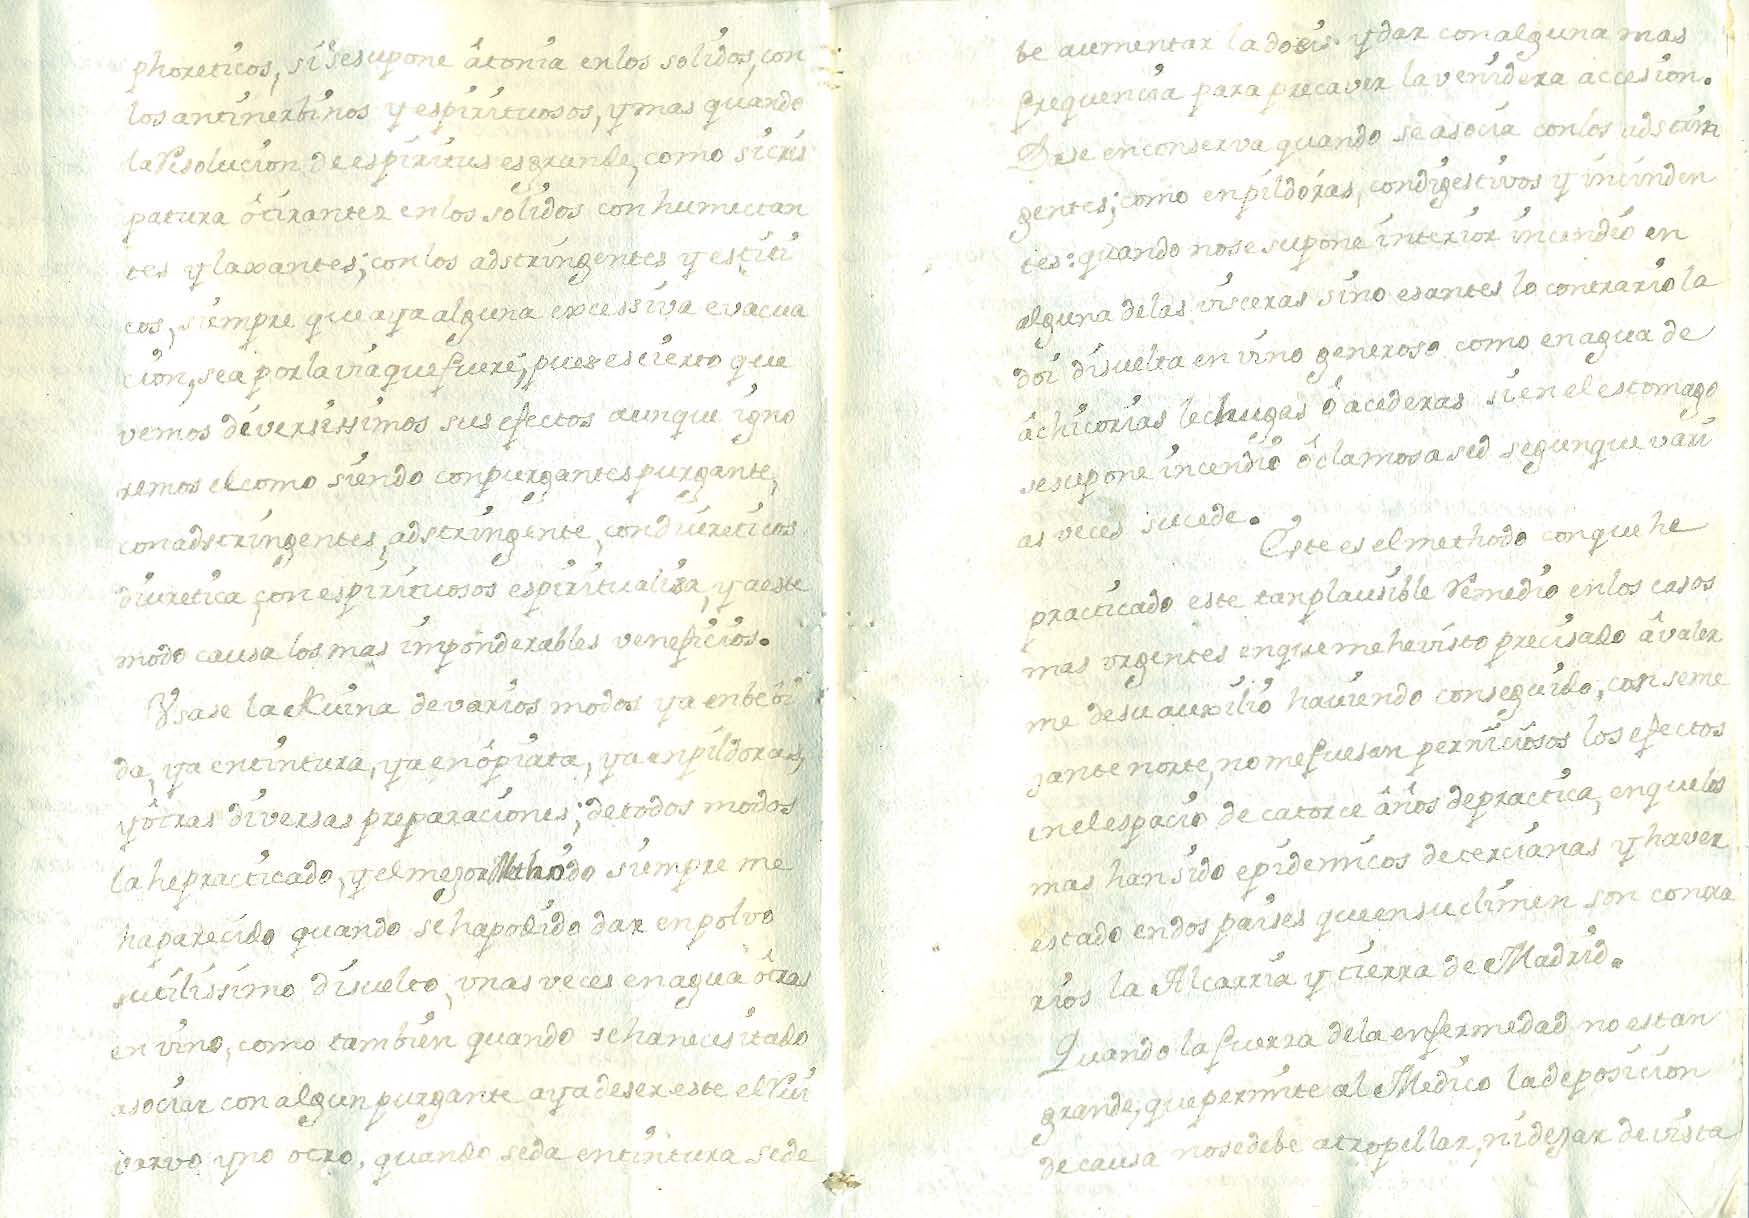 phoreticos, si sesupone âtonia enlos solidos, con
los antinerbinos y espirituosos, ymas quando
la Resolucion de espiritus esgrande, como sicris
patura ôtirantez enlos sólidos con humectan
tes ylaxantes; conlos adstringentes y estiti
cos, siempre que aya alguna excessiva evacua
cion, sea por la via que fuere, pues escierto que
vemos diversissimos sus efectos aunque igno
remos elcomo siendo conpurgantes purgante,
con adstringentes, adstringente, condiureticos
diuretica, con espirituosos espiritualiza, y aeste
modo causa los mas imponderables veneficios.
Vsase la Kuina devarios modos ya enbebi
da, ya entintura, ya enôpiata, ya enpildoras,
yôtras diversas preparaciones; detodos modos
la hepracticado, y el mejor Methodo siempre me
haparecido quando sehapodido dar enpolvo
sutilissimo disuelto, vnas veces enagua ôtras
en vino, como tambien quando sehanecesitado
asociar con algun purgante aya deser este el Rui
varvo yno otro, quando seda entintura sede
be aumentar la dosis ydar con alguna mas
frequencia para precaver la venidera accesion.
Dase enconserva quando se asocia conlos adstrin
gentes; como enpildóras, condigestivos y incinden
tes: quando nose supone interior incendio en
alguna delas visceras sino esantes lo contrario la
doi disuelta en vino generoso como enagua de
âchicorias lechugas ô acederas si en el estomago
sesupone incendio ôclamosa sed segunque vari
as veces sucede.
Este es el methodo conque he
practicado este tanplausible Remedio enlos casos
mas vrgentes enque mehevisto precisado âvaler
me desu auxilio haviendo conseguido, con seme
jante norte, no mefuesen perniciosos los efectos
enelespacio de catorce âños depractica, enquelos
mas hansido epidemicos detercianas y haver
estado endos paises que ensuclimen son contra
rios la Alcarria y tierra de Madrid.
Quando la fuerza dela enfermedad no estan
grande, que permite al Medico ladeposicion
de causa nosedebe atropellar, nidejar devista